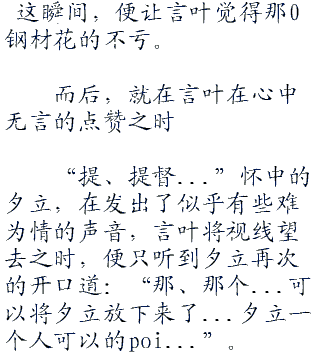 这瞬间，便让言叶觉得那0
钢材花的不亏。
而后，就在言叶在心中
无言的点赞之时
“提、提督...”怀中的
夕立，在发出了似乎有些难
为情的声音，言叶将视线望
去之时，便只听到夕立再次
的开口道：“那、那个...可
以将夕立放下来了...夕立一
个人可以的poi...”。